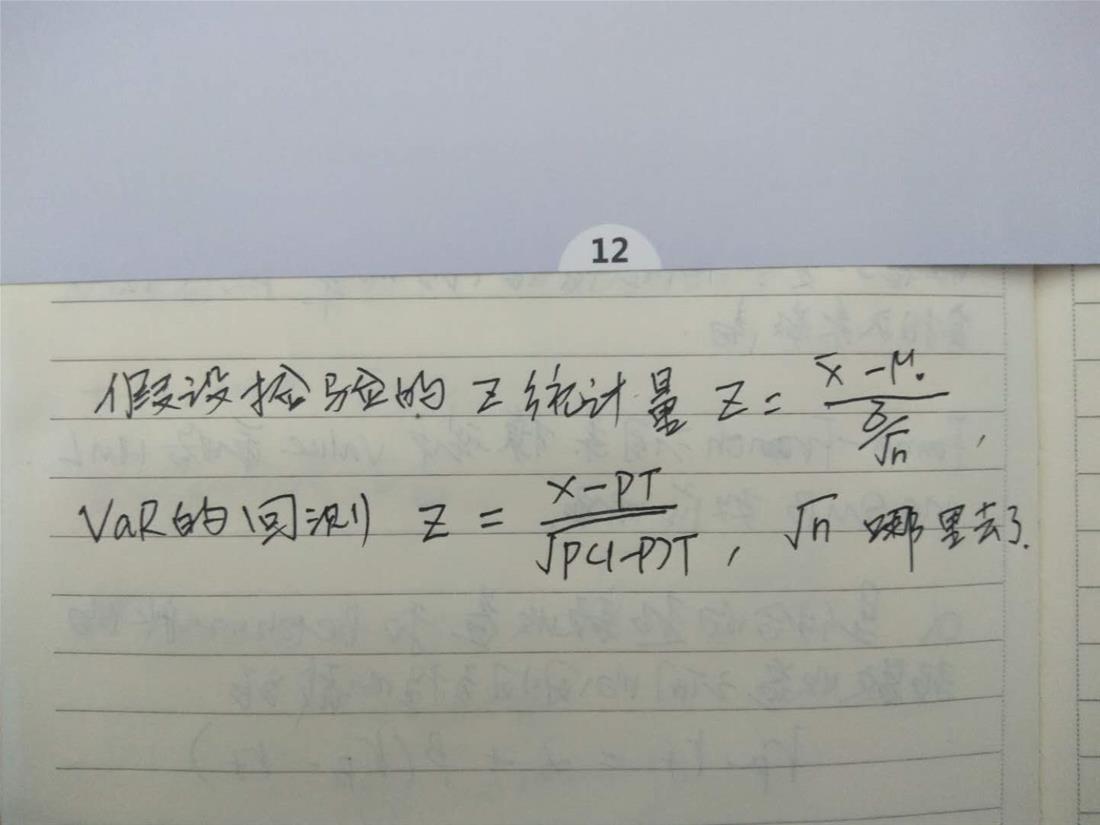 12
假设检验的 Z 统计量 Z = \frac{\bar{x} - μ_0}{σ/\sqrt{n}},
VaR的回测 Z = \frac{x - PT}{\sqrt{P(1-P)T}}, \sqrt{n} 哪里去了.